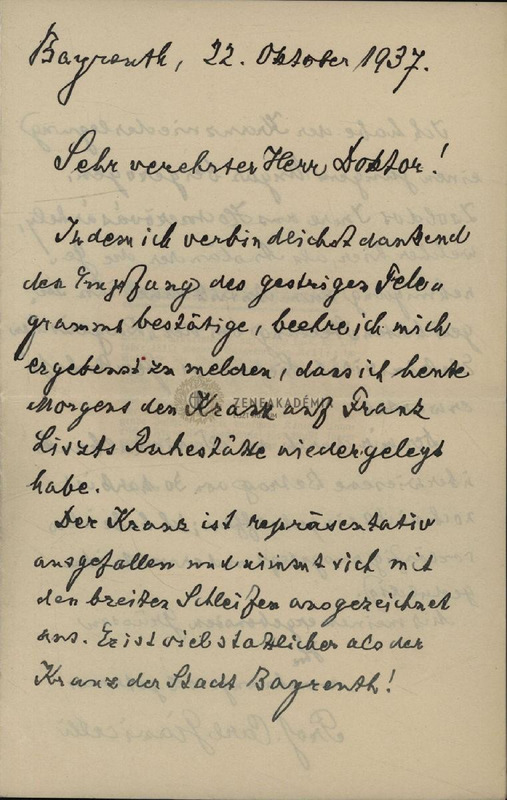 Bayreuth, 22. Oktober 1937.
Sehr verehrter Herr Doktor!
Indem ich verbindlichst dankend
den Empfang des gestrigen Tele-
gramms bestätige, beehre ich mich
ergebenst zu melden, dass ich heute
Morgens den Kranz auf Franz
ZENEAKADÉMIA
Liszts Ruhestätte niedergelegt
habe.
Der Kranz ist repräsentativ
ausgefallen und nimmt sich mit
den breiten Schleifen ausgezeichnet
aus. Er ist viel stattlicher als der
Kranz der Stadt Bayreuth!